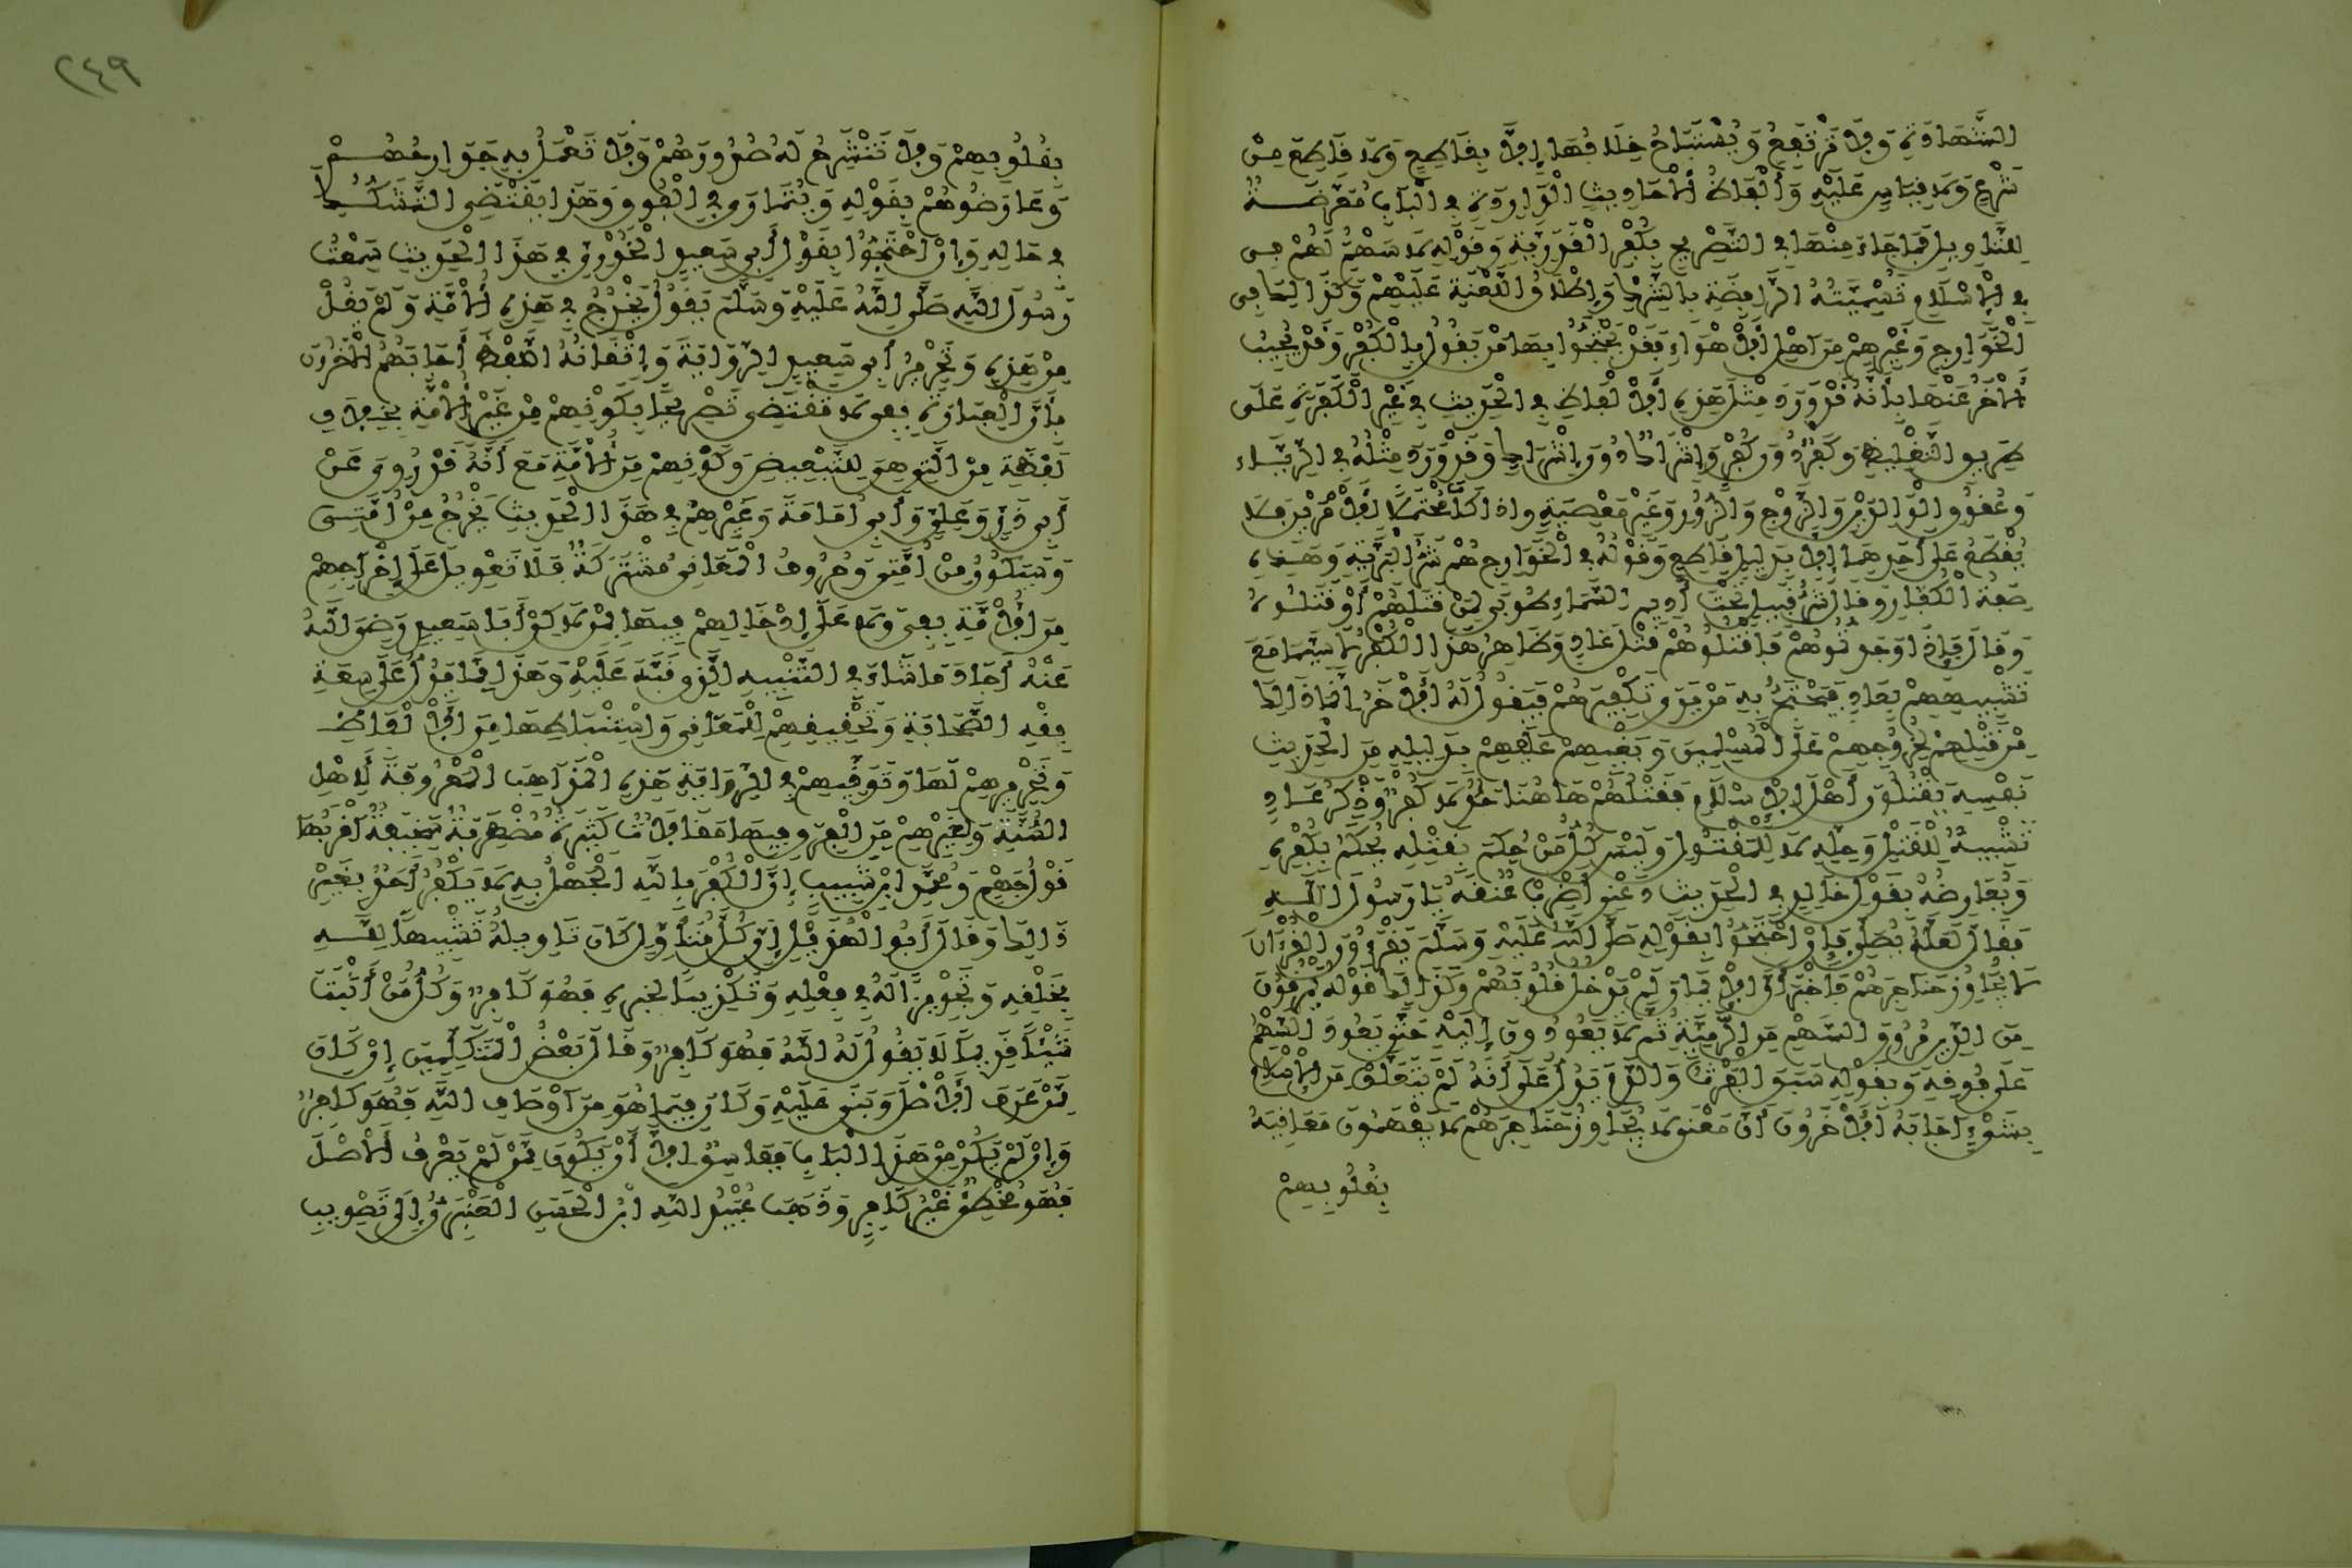 الشهادة ولا ترتفع ويستباح خلافها إلا بقاطع ولا قاطع من
شرع ولا قياس عليه وألفاظ الأحاديث الواردة في الباب معرضة
للتاويل فما جاء منها في التصريح بكفر القدرية وقوله لا سهم لهم في
في الإسلام وتسميته الرافضة بالشرك وإطلاق اللعنة عليهم وكذالك في
الخوارج وغيرهم من أهل الأهواء فقد يحتج بها من يقول بالكفر وقد يجيب
الأخر عنها بأنه قد ورد مثل هذه الألفاظ في الحديث في غير الكفرة على
طريق التغليظ وكفر دون كفر وإشراك دون إشراك وقد ورد مثله في الرياء
وعقوق الوالدين والزوج والزور وغير معصية وإذا كان محتملا للأمرين فلا
يقطع على أحدهما إلا بدليل قاطع وقوله في الخوارج هم شر البرية وهذه
صفة الكفار وقال شر قبيل تحت أديم السماء طوبى لمن قتلهم أو قتلوه
وقال فإذا وجدتموهم فاقتلوهم قتل عاد وظاهر هذا الكفر لا سيما مع
تشبيههم بعاد فيحتج به من يرى تكفيرهم فيقول له الأخر إنما ذالك
من قتلهم لخروجهم على المسلمين وبغيهم عليهم بدليله من الحديث
نفسه يقتلون أهل الإسلام فقتلهم هاهنا حد لا كفر وذكر عاد
تشبيه للقتل وحله لا للمقتول وليس كل من حكم بقتله يحكم بكفره
ويعارضه بقول خالد في الحديث دعني أضرب عنقه يا رسول الله
فقال لعله يصلي فإن احتجوا بقوله صلى الله عليه وسلم يقرءون القرءان
لا يجاوز حناجرهم فأخبر أن الإيمان لم يدخل قلوبهم وكذالك قوله يمرقون
من الدين مروق السهم من الرمية ثم لا يعودون إليه حتى يعود السهم
على فوقه وبقوله سبق الفرث والدم يدل على أنه لم يتعلق من الإسلام
بشيء أجابه الأخرون أن معنى لا يجاوز حناجرهم لا يفهمون معانيه
بقلوبهم
٢٤٩
بقلوبهم ولا تنشرح له صدورهم ولا تعمل به جوارحهم
وعارضوهم بقوله ويتمارى في الفوق وهذا يقتضي التشكك
في حاله وإن احتجوا بقول أبي سعيد الخدري في هذا الحديث سمعت
رسول الله صلى الله عليه وسلم يقول يخرج في هذه الأمة ولم يقل
من هذه وتحرير أبي سعيد الرواية وإتقانه اللفظ أجابهم الأخرون
بأن العبارة بفي لا تقتضي تصريحا بكونهم من غير الأمة بخلاف
لفظة من التي هي للتبعيض وكونهم من الأمة مع أنه قد روي عن
أبي ذر وعلي وأبي أمامة وغيرهم في هذا الحديث يخرج من أمتي
وسيكون من أمتي وحروف المعاني مشتركة فلا تعويل على إخراجهم
من الأمة بفي ولا على إدخالهم فيها بمن لاكن أبا سعيد رضي الله
عنه أجاد ما شاء في التنبيه الذي نبه عليه وهذا مما يدل على سعة
فقه الصحابة وتحقيقهم للمعاني واستنباطها من الألفاظ
وتحريرهم لها وتوقيهم في الرواية هذه المذاهب المعروفة لأهل
السنة ولغيرهم من الفرق فيها مقالات كثيرة مضطربة سخيفة أقربها
قول جهم ومحمد ابن شبيب إن الكفر بالله الجهل به لا يكفر أحد بغير
ذالك وقال أبو الهذيل إن كل متأول كان تاويله تشبيها لله
بخلقه وتجويرا له في فعله وتكذيبا لخبره فهو كافر وكل من أثبت
شيئا قديما لا يقول له الله فهو كافر وقال بعض المتكلمين إن كان
ممن عرف الأصل وبنى عليه وكان فيما هو من أوصاف الله فهو كافر
وإن لم يكن من هذا الباب ففاسق إلا أن يكون ممن لم يعرف الأصل
فهو مخطئ غير كافر وذهب عبيد الله ابن الحسن العنبري إلى تصويب